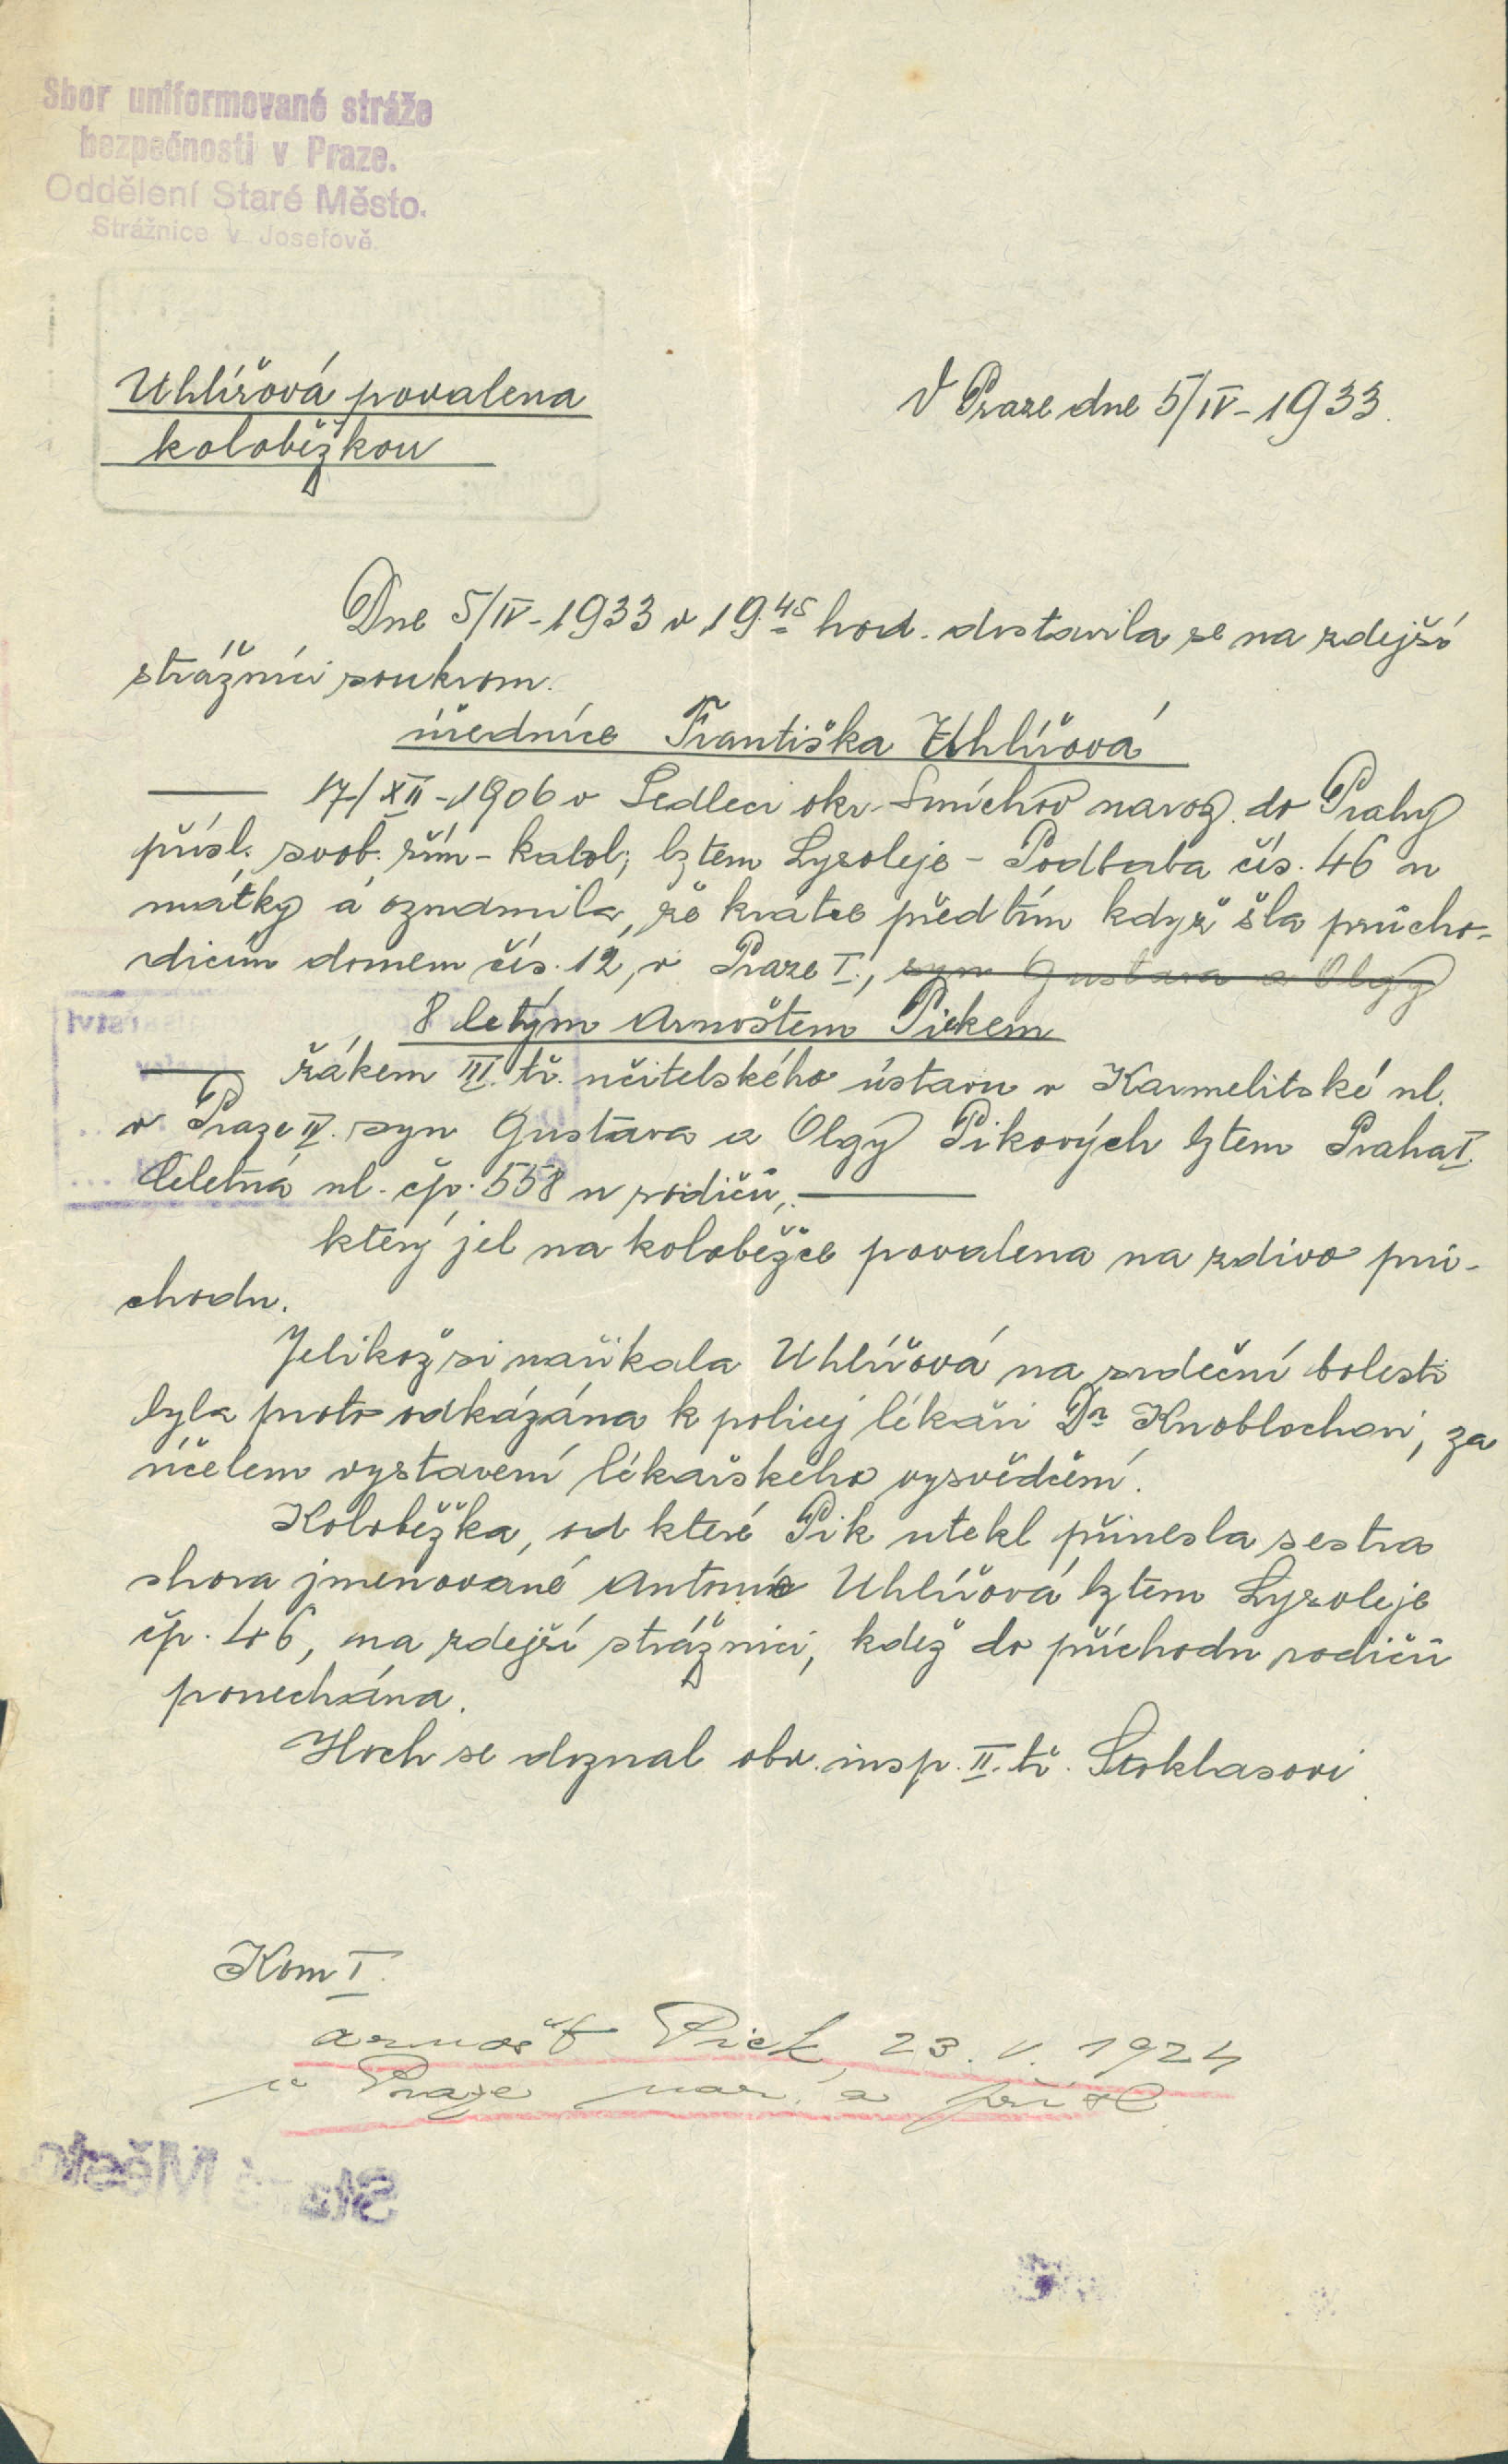 Sbor uniformované stráže
bezpečnosti v Praze.
Oddělení Staré Město.
Strážnice v Josefově.
Uhlířová povalena
koloběžkou
V Praze dne 5/IV-1933.
Dne 5/IV-1933 v 19.45 hod. dostavila se na zdejší
strážnici soukrom.
úřednice Františka Uhlířová
17/XII-1906 v Sedleci okr. Smíchov naroz. do Prahy
přísl. svob. řím-katol; bytem Lysoleje - Podbaba čís. 46 u
matky a oznámila, že krátce předtím když šla průcho-
dicím domem čís. 12, v Praze I., syn Gustava a Olgy
8 letým Arnoštem Pickem
žákem III. tř. učitelského ústavu v Karmelitské ul.
v Praze III. syn Gustava a Olgy Pikových bytem Praha I.
Celetná ul. čp. 558 u rodičů,
který jel na koloběžce povalena na zdivo prů-
chodu.
Jelikož si naříkala Uhlířová na srdeční bolesti
byla proto odkázána k policej lékaři Dr Knoblochovi, za
účelem vystavení lékařského vysvědčení.
Koloběžka, od které Pik utekl přinesla sestra
shora jmenované Antonie Uhlířová bytem Lysoleje
čp. 46, na zdejší strážnici, kdež do příchodu rodičů
ponechána.
Hoch se doznal obv. insp. II. tř. Stoklasovi
Kom I.
Arnošt Pick, 23. V. 1924
v Praze nar. a přísl.
Staré Město